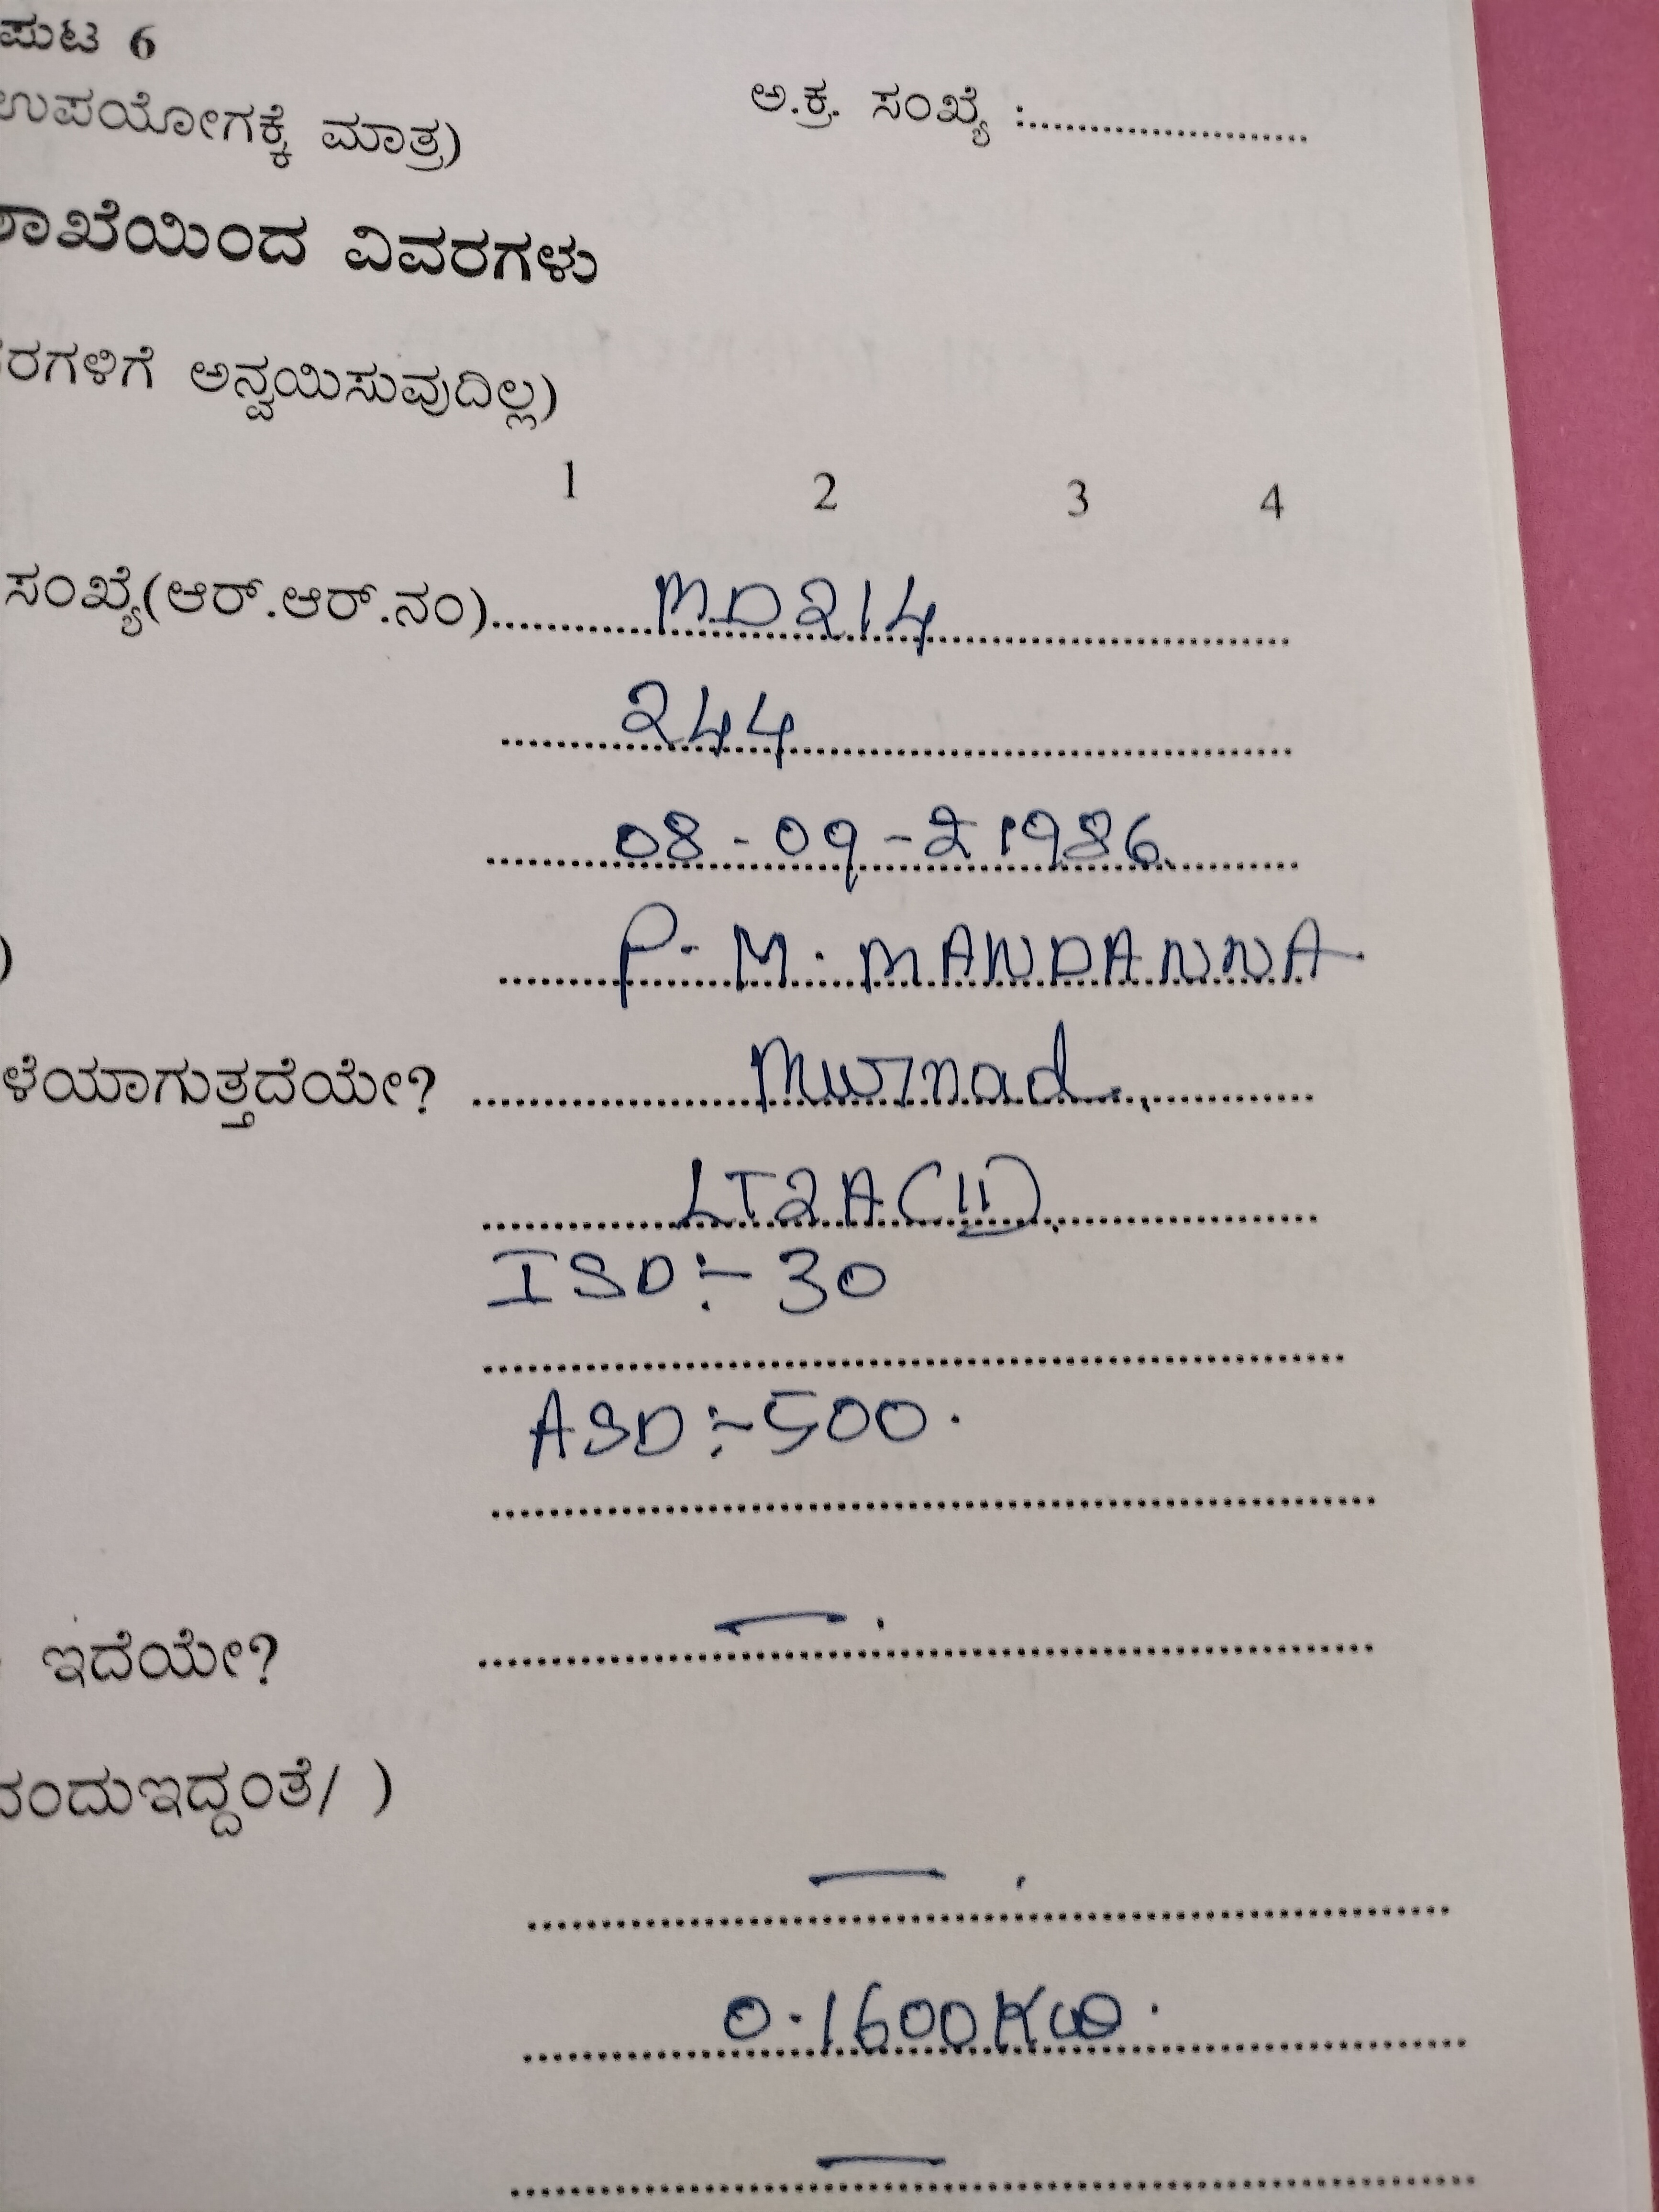 ಪುಟ 6
ಉಪಯೋಗಕ್ಕೆ ಮಾತ್ರ)
ಅ.ಕ್ರ. ಸಂಖ್ಯೆ :......................
ಶಾಖೆಯಿಂದ ವಿವರಗಳು
ರಗಳಿಗೆ ಅನ್ವಯಿಸುವುದಿಲ್ಲ)
1 2 3 4
ಸಂಖ್ಯೆ(ಆರ್.ಆರ್.ನಂ) MD214
244
08-09-21986
) P. M. MANDANNA
ಳೆಯಾಗುತ್ತದೆಯೇ? Murnad
LT2A(II)
ISD:- 30
ASD:- 500.
ಇದೆಯೇ? —.
ನಂದುಇದ್ದಂತೆ/ )
— .
0.1600KW.
—